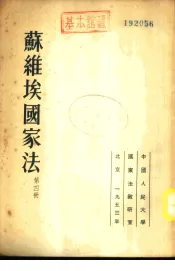 192056
蘇維埃國家法
第四冊
中國人民大學
國家法教研室
北京 一九五三年